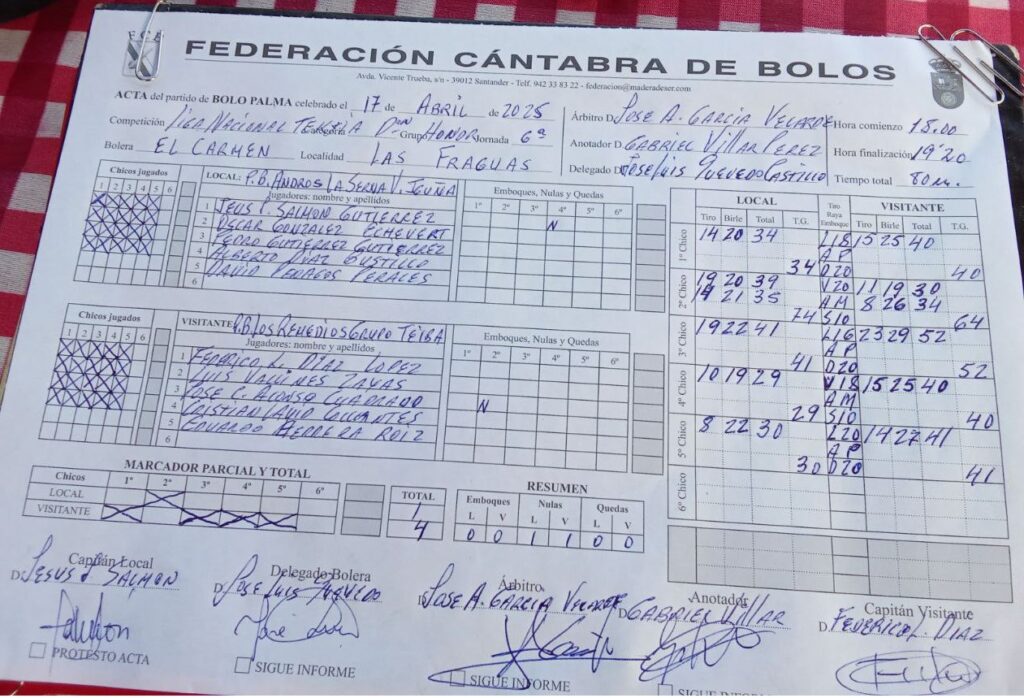 FEDERACIÓN CÁNTABRA DE BOLOS
Avda. Vicente Trueba, s/n - 39012 Santander - Telf. 942 33 83 22 - federacion@maderadeser.com
ACTA del partido de BOLO PALMA celebrado el 17 de ABRIL de 2025
Competición LIGA NACIONAL Categoría Don HONOR Grupo Jornada 6ª
Bolera EL CARMEN Localidad LAS FRAGUAS
Árbitro D. JOSE A. GARCIA VELARDE
Anotador D. GABRIEL VILLAR PEREZ
Delegado D. JOSE LUIS QUEVEDO CASTILLO
Hora comienzo 18.00
Hora finalización 19'20
Tiempo total 80 m.
Chicos jugados
1 2 3 4 5 6
LOCAL: P.B. ANDROS LA SERNA V. IGUÑA
Jugadores: nombre y apellidos
1 SALMON GUTIERREZ
2 OSCAR GONZALEZ ECHEVERT
3 PEDRO GUTIERREZ GUTIERREZ
4 ALBERTO DIAZ BUSTILLO
5 DAVID PENAGOS PERALES
6
Emboques, Nulas y Quedas
1º 2º 3º 4º 5º 6º
N
Chicos jugados
1 2 3 4 5 6
VISITANTE: P.B. LOS REMEDIOS GRUPO TEIBA
Jugadores: nombre y apellidos
1 FEDERICO L. DIAZ LOPEZ
2 LUIS VALLINES ZAYAS
3 JOSE C. ALONSO CUADRADO
4 CRISTIAN
5 EDUARDO HERRERA ROIZ
6
Emboques, Nulas y Quedas
1º 2º 3º 4º 5º 6º
N
LOCAL Tiro Raya Emboque VISITANTE
Tiro Birle Total T.G. Tiro Birle Total T.G.
1º Chico 14 20 34 L18 15 25 40
AP
34 D20 40
2º Chico 19 20 39 V20 11 19 30
14 21 35 AM 8 26 34
74 S10 64
3º Chico 19 22 41 L16 23 29 52
AP
41 D20 52
4º Chico 10 19 29 V18 15 25 40
AM
29 S10 40
5º Chico 8 22 30 L20 14 27 41
AP
30 D20 41
6º Chico
MARCADOR PARCIAL Y TOTAL
Chicos 1º 2º 3º 4º 5º 6º TOTAL
LOCAL 1
VISITANTE 4
RESUMEN
Emboques Nulas Quedas
L V L V L V
0 0 1 1 0 0
Capitán Local
D. JESUS SALMON
Delegado Bolera
D. JOSE LUIS QUEVEDO
Árbitro
D. JOSE A. GARCIA VELARDE
Anotador
D. GABRIEL VILLAR
Capitán Visitante
D. FEDERICO L. DIAZ
PROTESTO ACTA
SIGUE INFORME
SIGUE INFORME
SIGUE INFORME